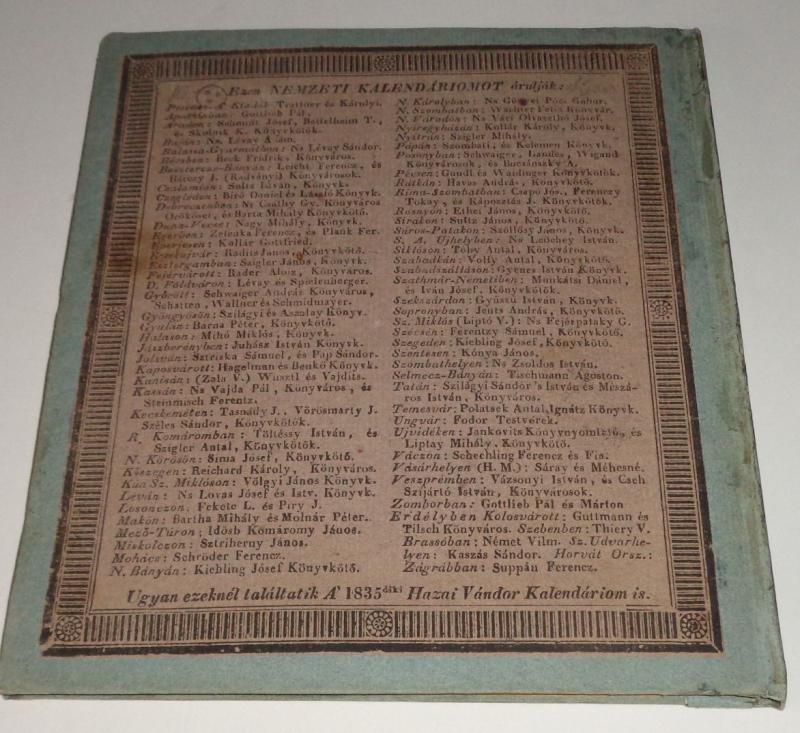 Ezen NEMZETI KALENDÁRIOMOT árulják:
Pesten: A' Kiadók Trattner és Károlyi.
Gottlieb Pál.
Aradon: Schmidt Josef, Bettelheim T.,
és Skolnik K. Könyvkötők.
Baján: Ns. Lévay Ádám.
Balassa-Gyarmathon: Ns Lévay Sándor.
Bécsben: Beck Fridrik, Könyváros.
Besztercze-Bányán: Leicht Ferencz, és
Rávey J. (Radványi) Könyvárosok.
Csalamián: Sultz István, Könyvk.
Czegléden: Biró Dániel és László Könyvk.
Debreczenben: Ni Csáthy Gy. Könyváros
Örökösei, és Barta Mihály Könyvkötő.
Duna-Vecse: Nagy Mihály, Könyvk.
Egerben: Zelenka Ferencz, és Plank Fer.
Eperjesen: Kollár Gottfried.
Érsekujvár: Radits János, Könyvkötő.
Esztergamban: Szigler János, Könyvk.
Fejérvárott: Bader Aloiz, Könyváros.
D. Földváron: Lévay és Spielenberger.
Győrött: Schwaiger András Könyváros,
Schatten, Wallner és Schmidmayer.
Gyöngyösön: Szilágyi és Aszalay Könyv.
Gyulán: Barna Péter, Könyvkötő.
Halason: Mihó Miklós, Könyvk.
Jászberényben: Juhász István Könyvk.
Jolsván: Sztriska Sámuel, és Pap Sándor.
Kaposvárott: Hagelman és Benkő Könyvk.
Kanisán: (Zala V.) Wuszil és Vajdits.
Kassán: Ns Vajda Pál, Könyváros, és
Steinmisch Ferentz.
Kecskeméten: Tasnády J., Vörösmarty J.
Széles Sándor, Könyvkötők.
R. Komáromban: Töltéssy István, és
Szigler Antal, Könyvkötők.
N. Körösön: Sima Jósef, Könyvkötő.
Kőszegen: Reichard Károly, Könyváros.
Kún Sz. Miklóson: Völgyi János Könyvk.
Leván: Ns Lovas Jósef és Istv. Könyvk.
Losonczon: Fekete L. és Piry J.
Makón: Bartha Mihály és Molnár Péter.
Mező-Túron: Idősb Komáromy János.
Miskolczon: Sztriherny János.
Mohács: Schröder Ferencz.
N. Bányán: Kiebling Jósef Könyvkötő.
N. Károlyban: Ns Gönyei Póts Gábor.
N. Szombatban: Wachter Felix Könyvár.
N. Váradon: Ns Váci Olvaszthó Jósef.
Nyíregyházán: Kollár Károly, Könyvk.
Nyitrán: Szigler Mihály.
Pápán: Szombati, és Kelemen Könyvk.
Posonyban: Schwaiger, Landes, Wigand
Könyvárosok, és Bucsánszky A.
Pécsen: Gundl és Weidinger Könyvkötők.
Rátkán: Havas András, Könyvkötő.
Rima-Szombatban: Csapó Jós., Ferenczy
Tokay, és Káposztás J. Könyvkötők.
Rosnyón: Ethei János, Könyvkötő.
Sirakon: Sultz János, Könyvkötő.
Sáros-Patakon: Szöllősy János, Könyvk.
S. A. Ujhelyben: Ns Ladchey István.
Siklóson: Tóby Antal, Könyváros.
Szabadkán: Volfy Antal, Könyvkötő.
Szabadszálláson: Gyenes István Könyvk.
Szathmár-Németiben: Munkátsi Dániel,
és Iván Jósef. Könyvkötők.
Szekszárdon: Gyüssü István, Könyvk.
Sopronyban: Jents András, Könyvkötő.
Sz. Miklós (Liptó V.): Ns Fejérpataky G.
Szécsén: Ferentzy Sámuel, Könyvkötő.
Szegeden: Kiebling Jósef, Könyvkötő.
Szentesen: Kónya János.
Szombathelyen: Ns Zsoldos István.
Selmecz-Bányán: Tischmann Ágoston.
Tatán: Szilágyi Sándor 's István és Mészá-
ros István, Könyváros.
Temesvár: Polatsek Antal, Ignátz Könyvk.
Ungvár: Fodor Testvérek.
Ujvidéken: Jankovits Könyvnyomtató, és
Liptay Mihály. Könyvkötő.
Váczon: Schechling Ferencz és Fia.
Vásárhelyen (H. M.): Sáray és Méhesné.
Veszprémben: Vázsonyi István, és Cseh
Szíjártó István, Könyvárosok.
Zomborban: Gottlieb Pál és Márton
Erdélyben Kolosvárott: Guttmann és
Tilsch Könyváros. Szebenben: Thiery V.
Brassóban: Német Vilm. Sz. Udvarhe-
lyen: Kaszás Sándor. Horvát Orsz.:
Zágrábban: Suppán Ferencz.
Ugyan ezeknél találtatik A' 1835diki Hazai Vándor Kalendáriom is.